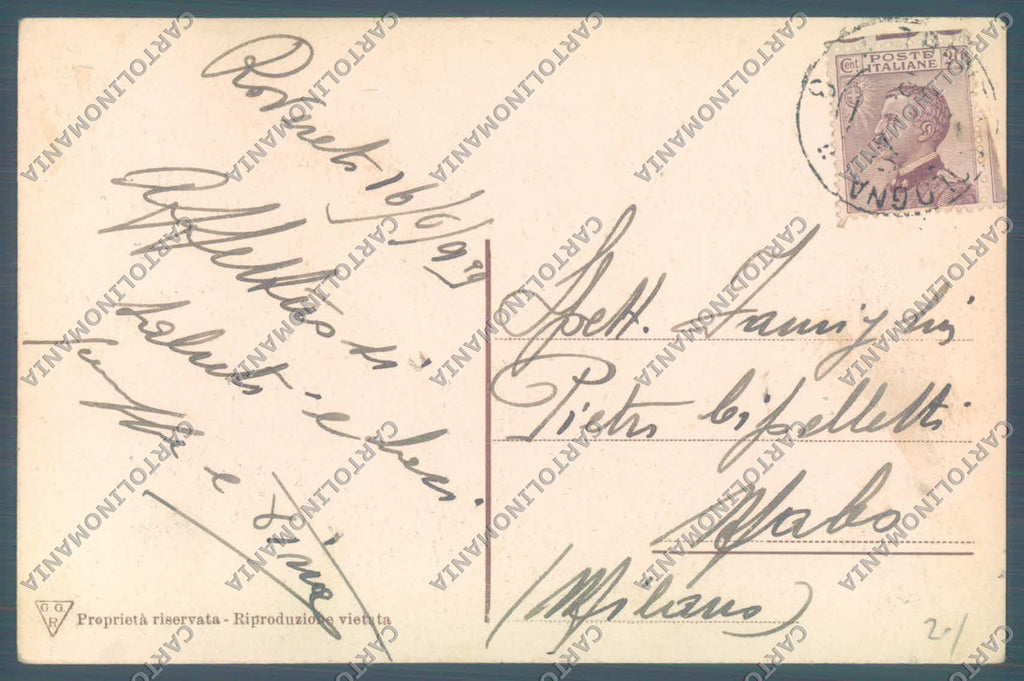 Rovereto 16/6/929
Affettuosi
saluti e baci
e Lina
Spett. Famiglia
Pietro
(Milano)
Cent 20
POSTE
ITALIANE
BOLOGNA
G G
R
Proprietà riservata - Riproduzione vietata
2-/
CARTOLINOMANIA